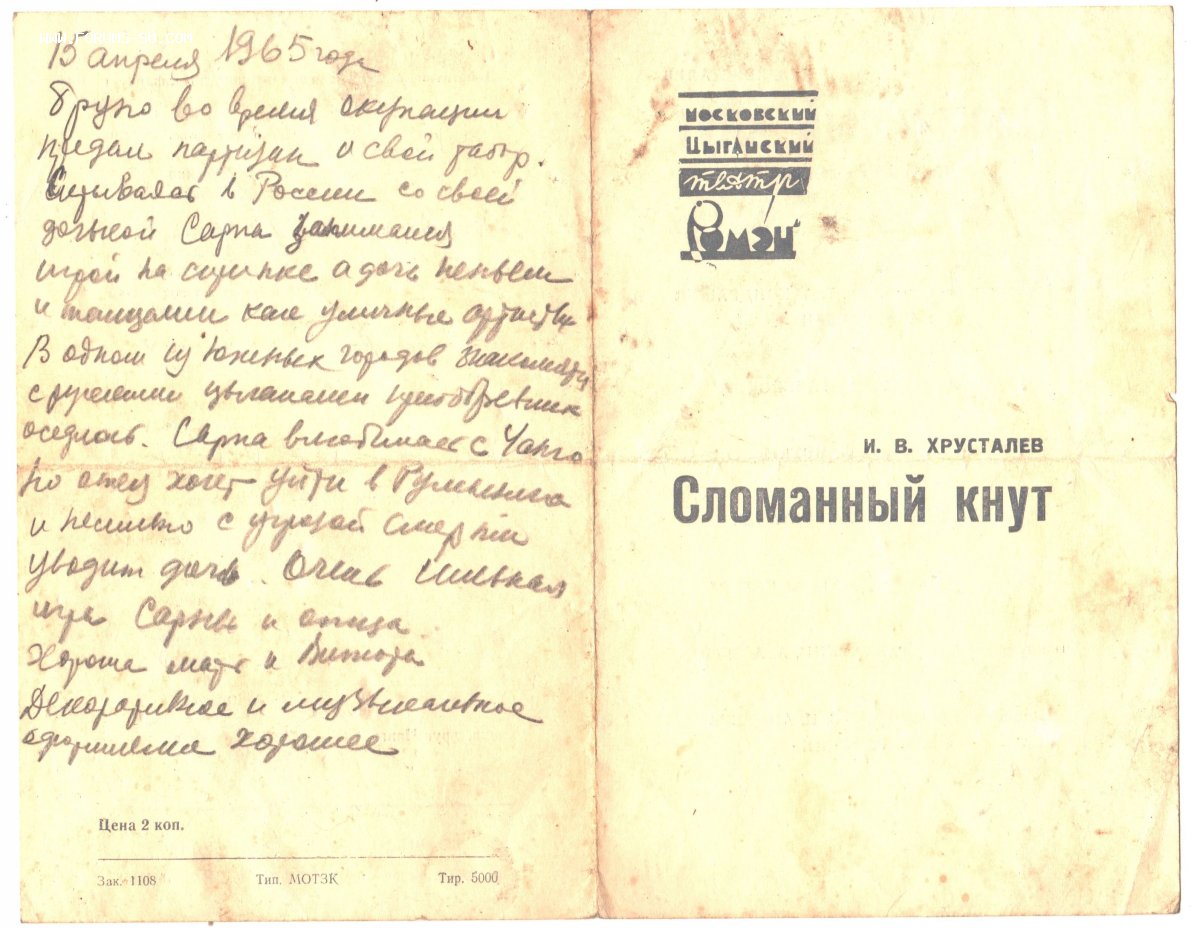 15 апреля 1965 года
Бруно во время окупации
предал партизан и свой табор.
Скрываясь в России со своей
дочькой Сарпа занимался
игрой на скрипке а дочь пеньем
и танцами как уличные артисты
В одном из Южных городов знакомятся
с рускими цыганами
оседлость. Сарпа влюбилась с Чанго
Но отец хочет уйти в Румынию
и насильно с угрозой смерти
уводит дочь. Очень сильная
игра Сарпы и отца
Хороша мать и
Декоративное и музыкальное
оформление хорошее
Цена 2 коп.
Зак. 1108 Тип. МОТЗК Тир. 5000
МОСКОВСКИЙ
ЦЫГАНСКИЙ
ТЕАТР
"РОМЭН"
И. В. ХРУСТАЛЕВ
Сломанный кнут